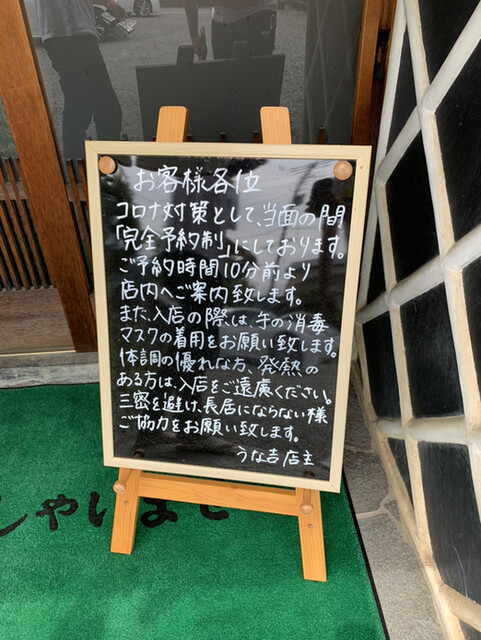 お客様各位
コロナ対策として、当面の間
「完全予約制」にしております。
ご予約時間10分前より
店内へご案内致します。
また、入店の際は、手の消毒
マスクの着用をお願い致します。
体調の優れな方、発熱の
ある方は、入店をご遠慮ください。
三密を避け、長居にならない様
ご協力をお願い致します。
うな吉店主
しゃいませ